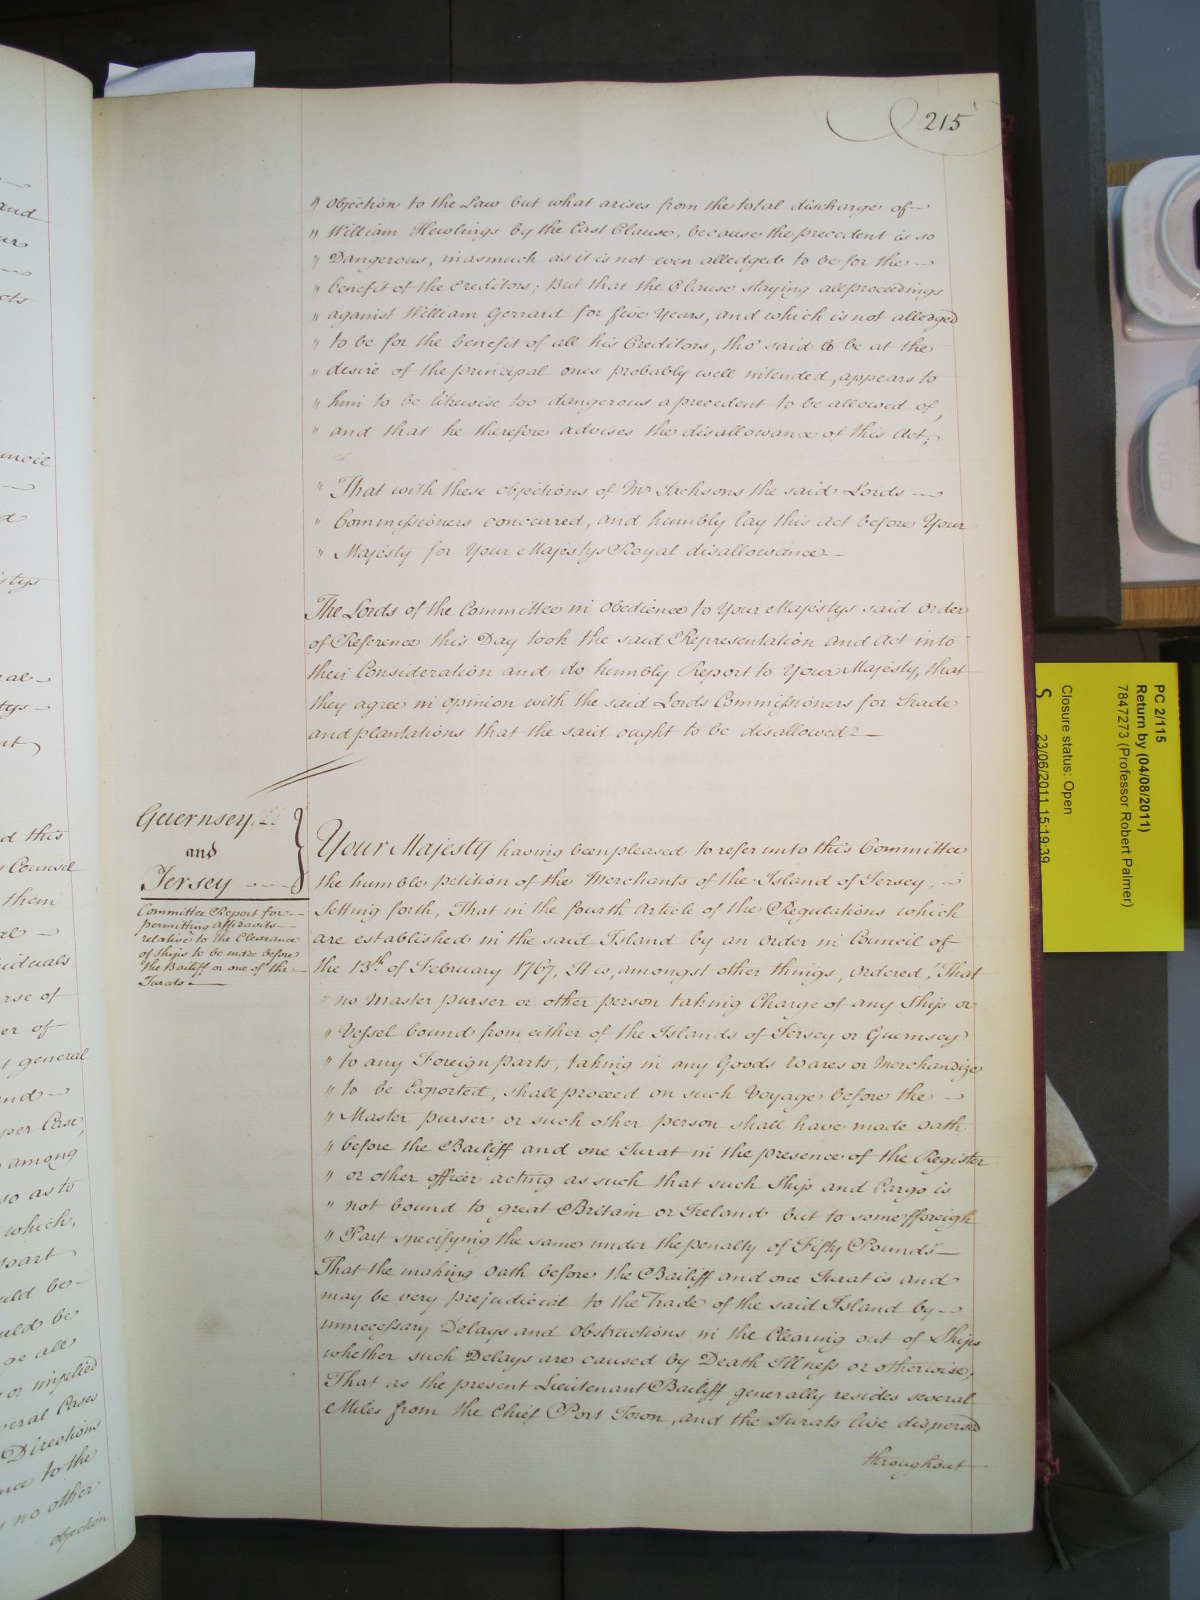 215
" Objection to the Law but what arises from the total discharge of
" William Hewlings by the Last Clause, because the precedent is so
" Dangerous, inasmuch as it is not even alledged to be for the
" benefit of the Creditors; But that the Clause staying all proceedings
" against William Gerrard for five Years, and which is not alledged
" to be for the benefit of all his Creditors, tho' said to be at the
" desire of the principal ones probably well intended, appears to
" him to be likewise too dangerous a precedent to be allowed of,
" and that he therefore advises the disallowance of this Act;
" That with these objections of Mr Jacksons the said Lords
" Commissioners concurred, and humbly lay this Act before Your
" Majesty for Your Majestys Royal disallowance
The Lords of the Committee in obedience to Your Majestys said Order
of Reference this Day took the said Representation and Act into
their Consideration and do humbly Report to Your Majesty, that
they agree in opinion with the said Lords Commissioners for Trade
and plantations that the said ought to be disallowed
Guernsey
and
Jersey
Committee Report for
permitting Affidavits
relative to the Clearance
of Ships to be made before
the Bailiff or one of the
Jurats
Your Majesty having been pleased to refer unto this Committee
the humble petition of the Merchants of the Island of Jersey,
Setting forth, That in the fourth Article of the Regulations which
are established in the said Island by an Order in Council of
the 13th of February 1767, It is, amongst other things, ordered, "That
" no Master purser or other person taking Charge of any Ship or
" Vessel bound from either of the Islands of Jersey or Guernsey
" to any Foreign parts, taking in any Goods Wares or Merchandize
" to be Exported, shall proceed on such Voyage before the
" Master purser or such other person shall have made Oath
" before the Bailiff and one Jurat in the presence of the Register
" or other officer acting as such that such Ship and Cargo is
" not bound to great Britain or Ireland but to some fforeign
" Part specifying the same under the penalty of Fifty Pounds"
That the making Oath before the Bailiff and one Jurat is and
may be very prejudicial to the Trade of the said Island by
unnecessary Delays and Obstructions in the Clearing out of Ships
whether such Delays are caused by Death Illness or otherwise;
That as the present Lieutenant Bailiff generally resides several
Miles from the Chief Port Town, and the Jurats live dispersed
throughout
PC 2/115
Return by (04/08/2011)
7847273 (Professor Robert Palmer)
Closure status: Open
S
23/06/2011 15:19:39
and
uncil
d this
Counsel
them
viduals
rse of
er of
t general
among
so as to
which,
part
uld be
uld be
ge all
or implied
veral Cases
Directions
nce to the
no other
objection